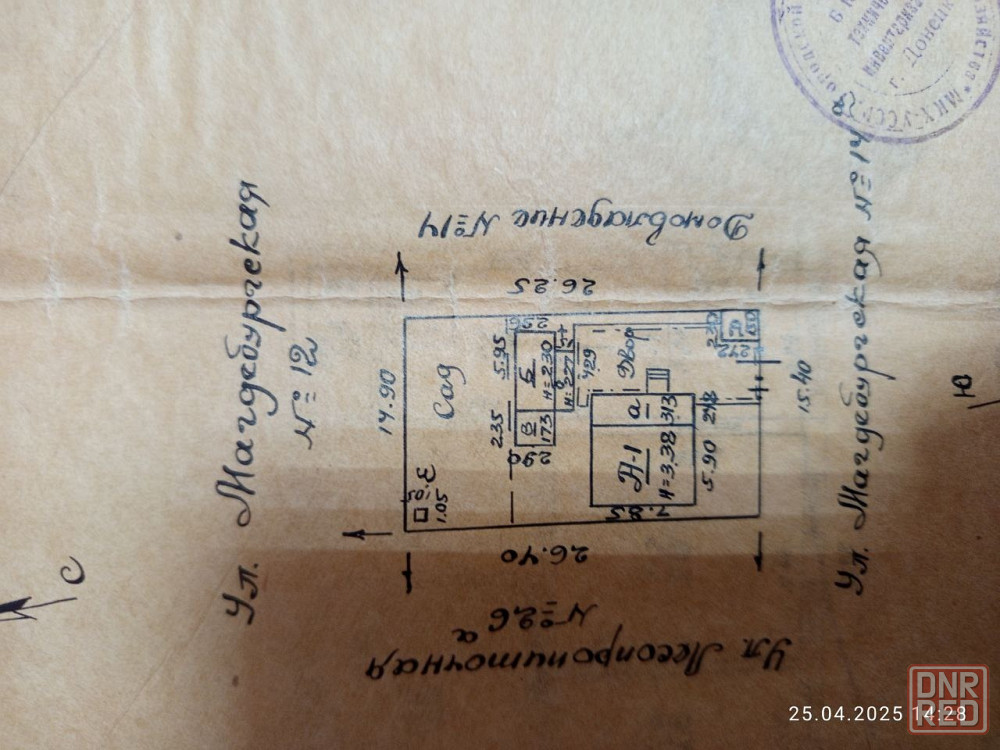 С
Ул. Магдебургская
№ 12
14.90
Сад
Домовладение № 14
26.25
26.40
Ул. Лесопропиточная
№ 26 а
Е
1.05
2.35
5.95
Б
В
H=2.30
H=2.27
1.73
2.90
4.29
Двор
А-1
а
H=3.38
3.13
7.85
5.90
2.48
2.30
2.42
15.40
Ул. Магдебургская № 14
Ю
г. Донецк
25.04.2025 14:28
DNR
RED